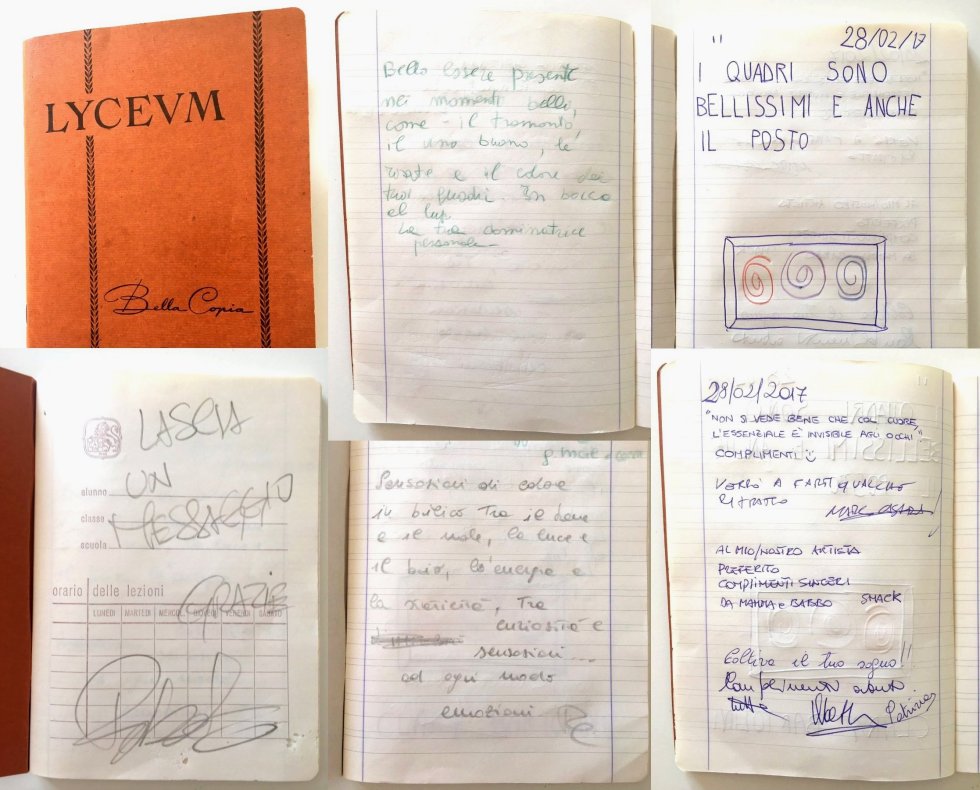 LYCEVM
Bella Copia
Bello essere presente
nei momenti belli,
come il tramonto,
il vino buono, le
e il colore dei
tuoi quadri. In bocca
al lup
La tua dominatrice
personale
28/02/17
I QUADRI SONO
BELLISSIMI E ANCHE
IL POSTO
LASCIA
UN
MESSAGGIO
GRAZIE
alunno
classe
scuola
orario delle lezioni
LUNEDÌ MARTEDÌ MERCOL GIOVEDÌ VENERDÌ SABATO
Sensazioni di colore
in bilico tra il bene
e il male, la luce e
il buio, l'energia e
la staticità, tra
curiosità e
sensazioni...
ad ogni modo
emozioni
28/02/2017
"NON SI VEDE BENE CHE COL CUORE,
L'ESSENZIALE È INVISIBILE AGLI OCCHI"
COMPLIMENTI
VERRÒ A FARTI QUALCHE
RITRATTO
AL MIO/NOSTRO ARTISTA
PREFERITO
COMPLIMENTI SINCERI
DA MAMMA e BABBO SMACK
Coltiva il tuo sogno!!
Complimenti
Patrizia